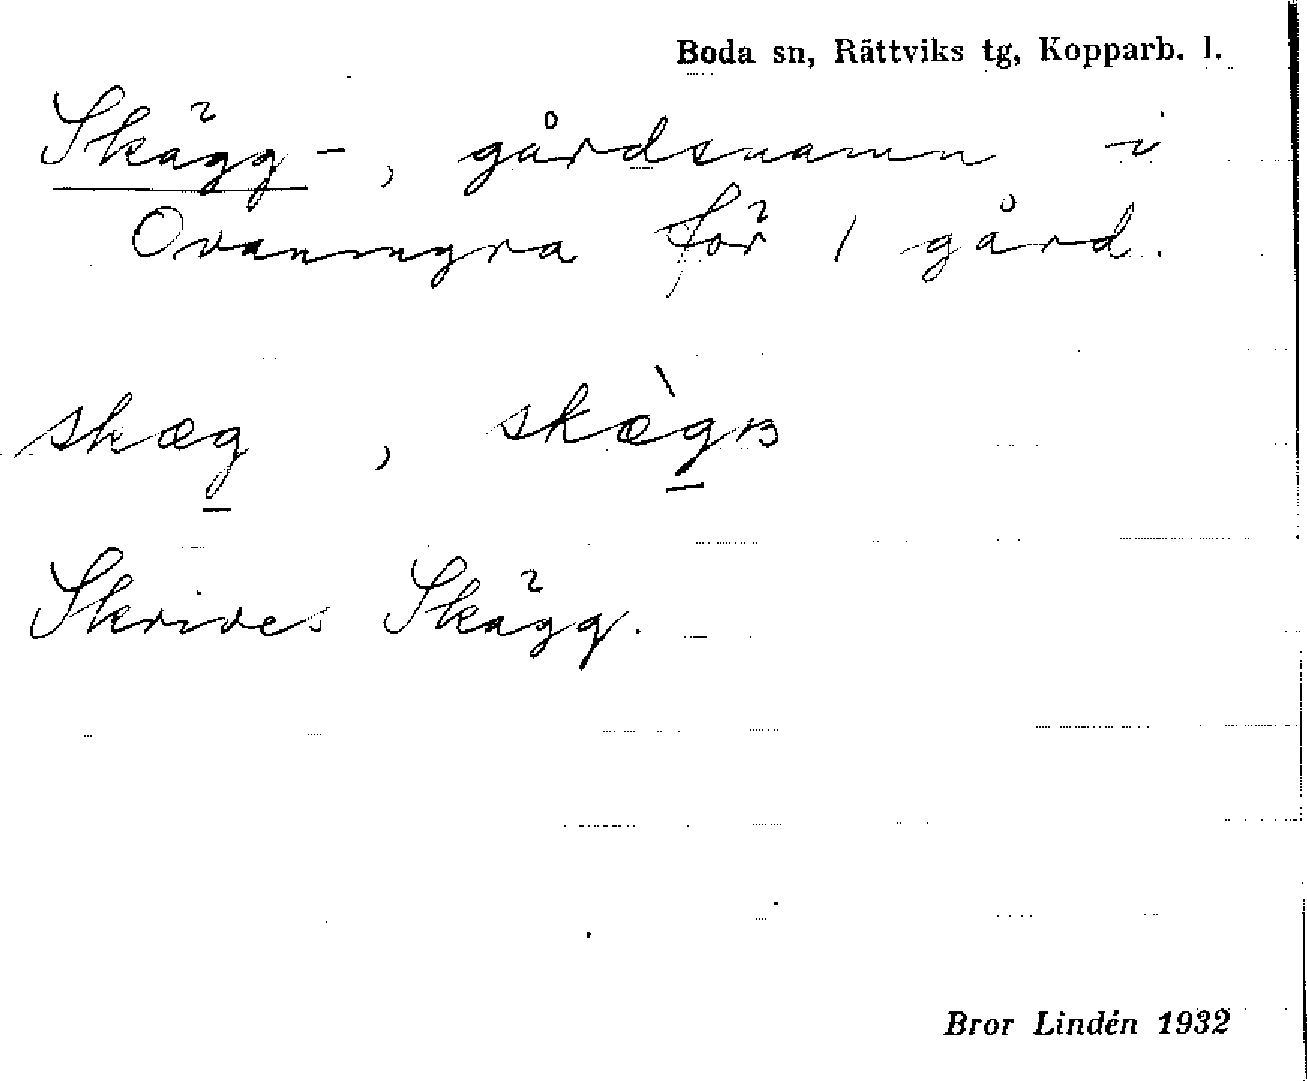 Boda sn, Rättviks tg, Kopparb. l.
Skägg-, gårdsnamn i
Ovanmyra för 1 gård.
skæg, skæ̀gɞ
Skrives Skägg.
Bror Lindén 1932